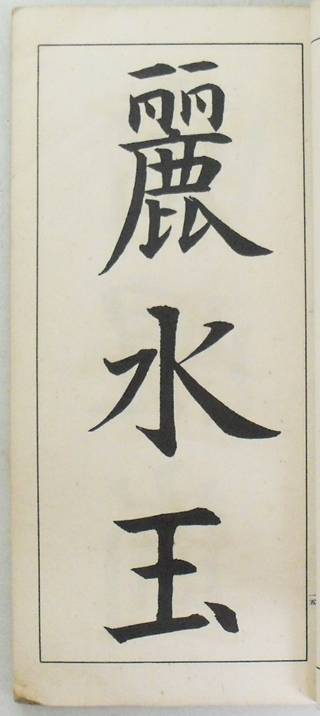 麗水玉